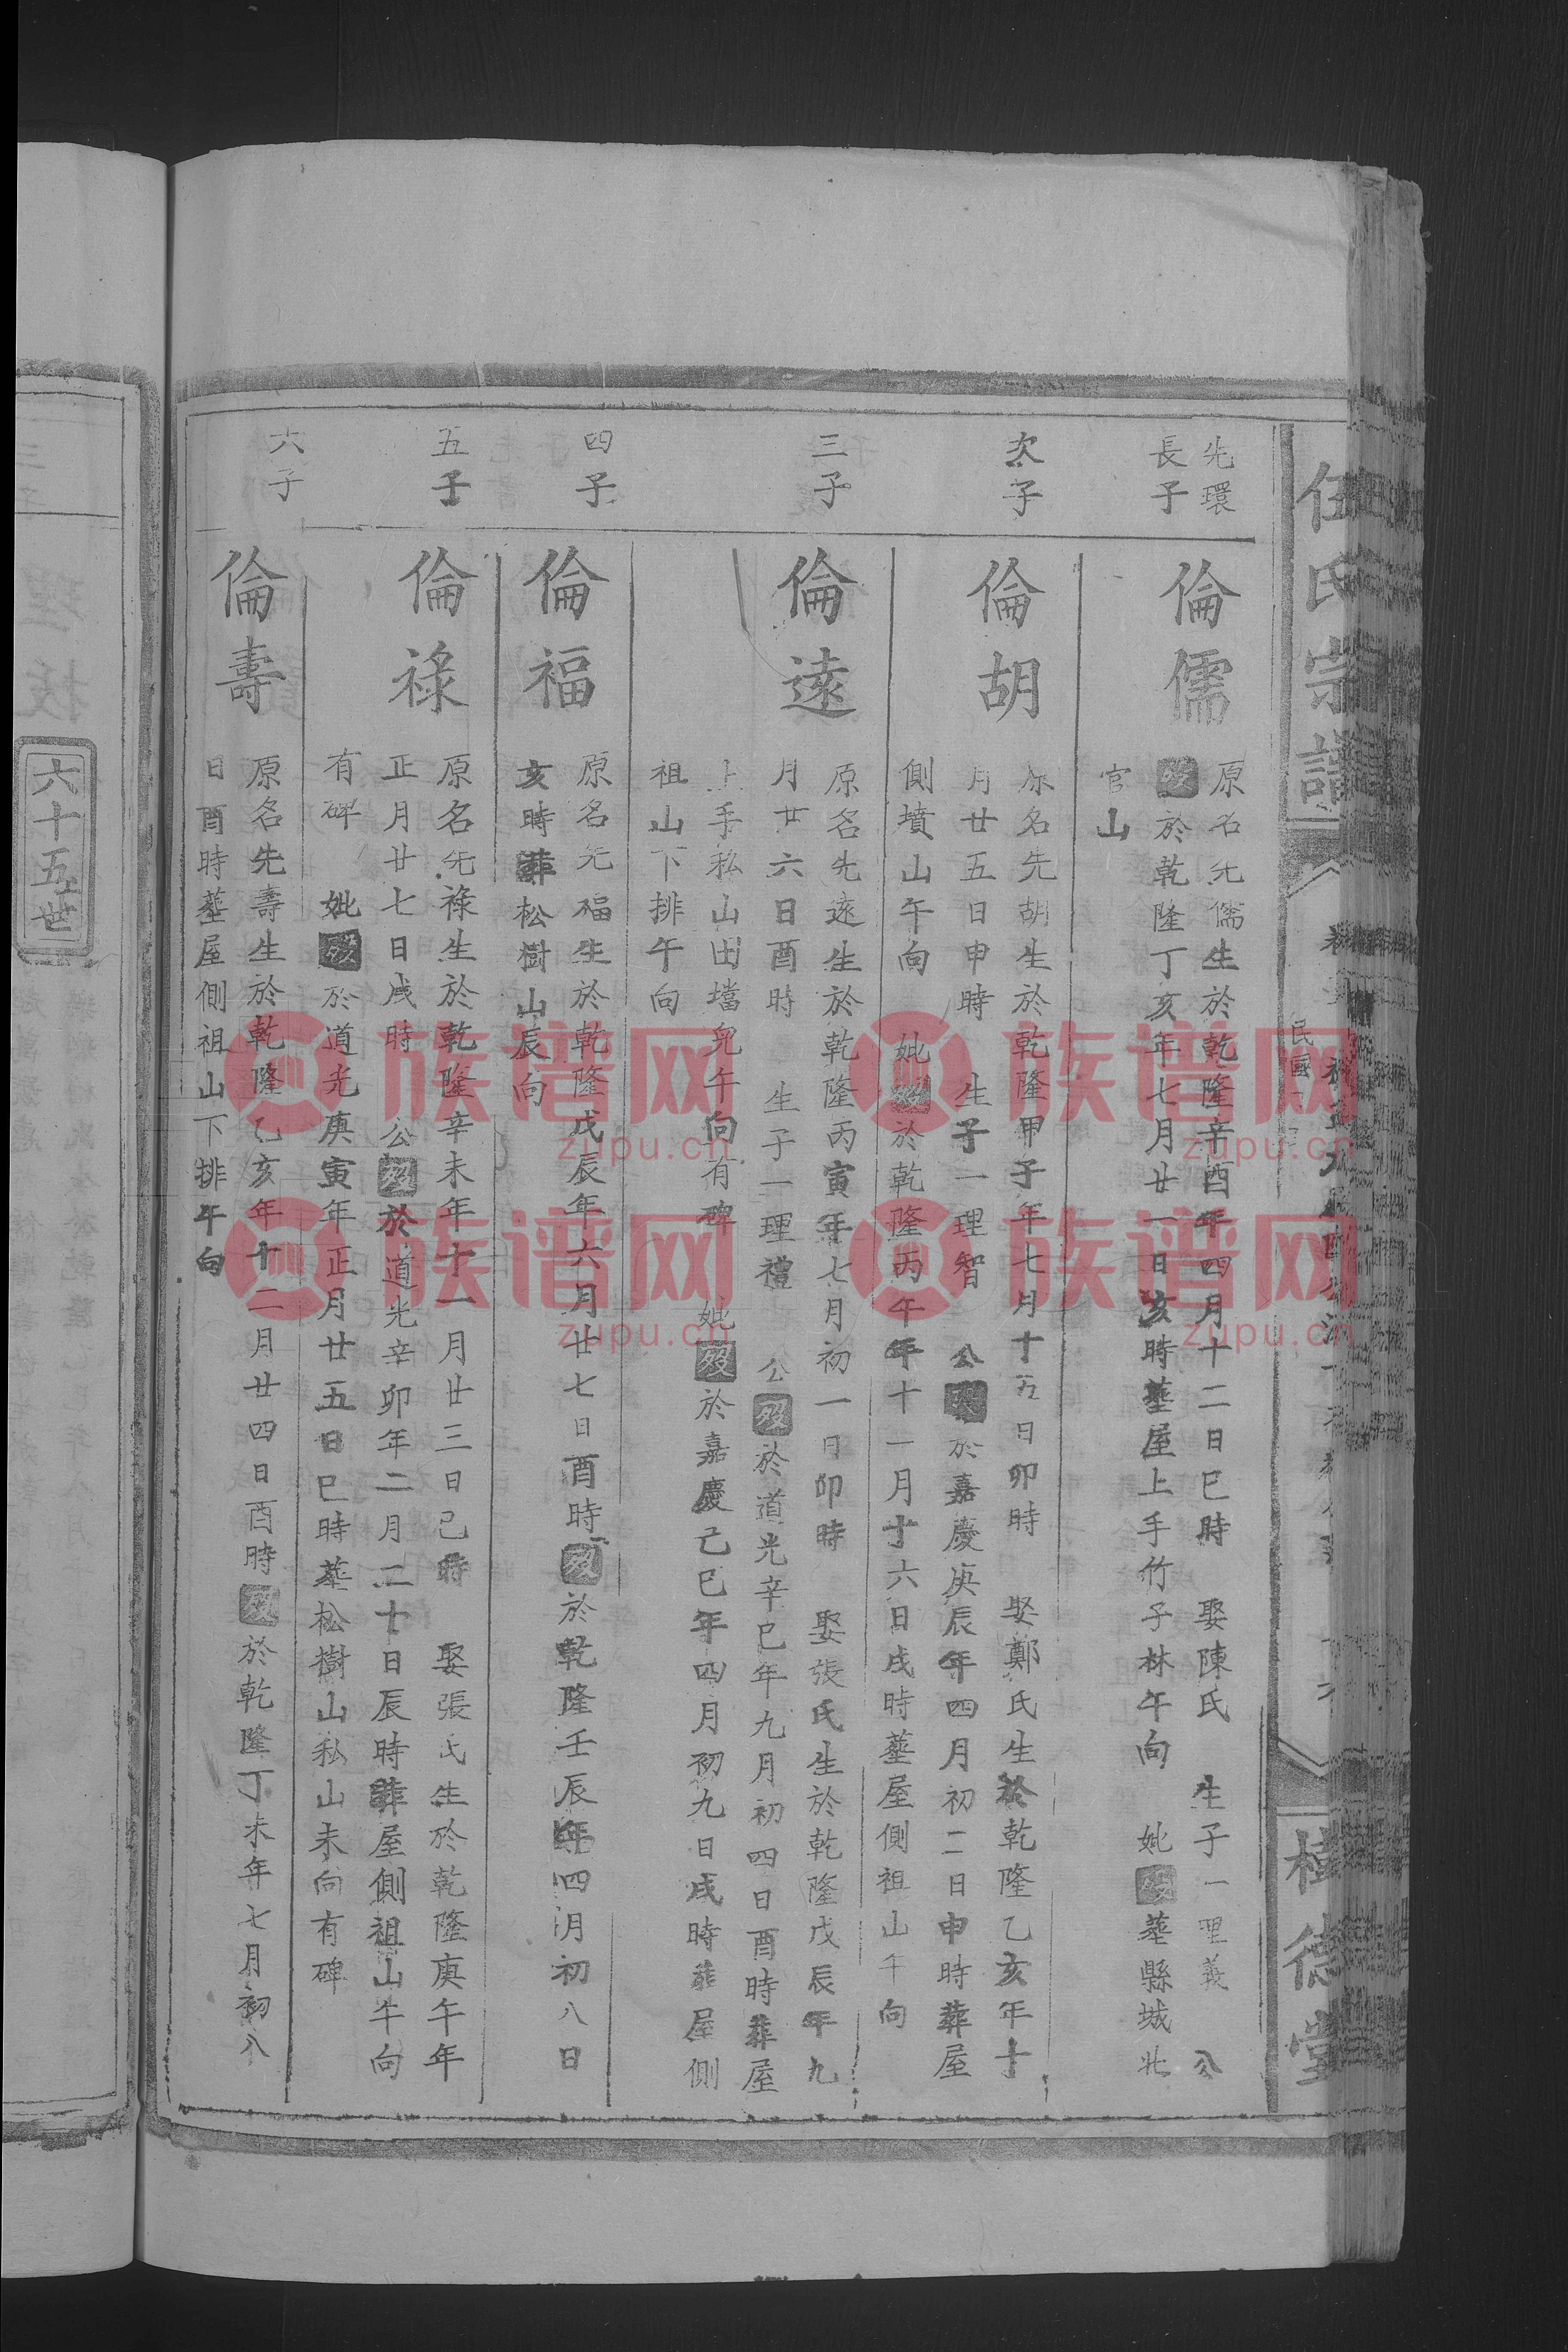 伍氏宗譜
民國
樹德堂
先環
長子
倫儒
原名先儒生於乾隆辛酉年四月十二日巳時 娶陳氏 生子一理義 公
歿於乾隆丁亥年七月廿一日亥時塟屋上手竹子林午向 妣歿塟縣城北
官山
次子
倫胡
原名先胡生於乾隆甲子年七月十五日卯時 娶鄭氏生於乾隆乙亥年十
月廿五日申時 生子一理智 公歿於嘉慶庚辰年四月初二日申時葬屋
側墳山午向 妣歿於乾隆丙午年十一月十六日戌時塟屋側祖山午向
三子
倫遠
原名先遠生於乾隆丙寅年七月初一日卯時 娶張氏生於乾隆戊辰年九
月廿六日酉時 生子一理禮 公歿於道光辛巳年九月初四日酉時葬屋
上手私山田壋兒午向有碑 妣歿於嘉慶己巳年四月初九日戌時葬屋側
祖山下排午向
四子
倫福
原名先福生於乾隆戊辰年六月廿七日酉時歿於乾隆壬辰年四月初八日
亥時葬松樹山辰向
五子
倫祿
原名先祿生於乾隆辛未年十一月廿三日己時 娶張氏生於乾隆庚午年
正月廿七日戌時 公歿於道光辛卯年二月二十日辰時葬屋側祖山午向
有碑 妣歿於道光庚寅年正月廿五日巳時塟松樹山私山未向有碑
六子
倫壽
原名先壽生於乾隆乙亥年十二月廿四日酉時歿於乾隆丁未年七月初八
日酉時塟屋側祖山下排午向
六十五世
族谱网
zupu.cn
族谱网
zupu.cn
族谱网
zupu.cn
族谱网
zupu.cn